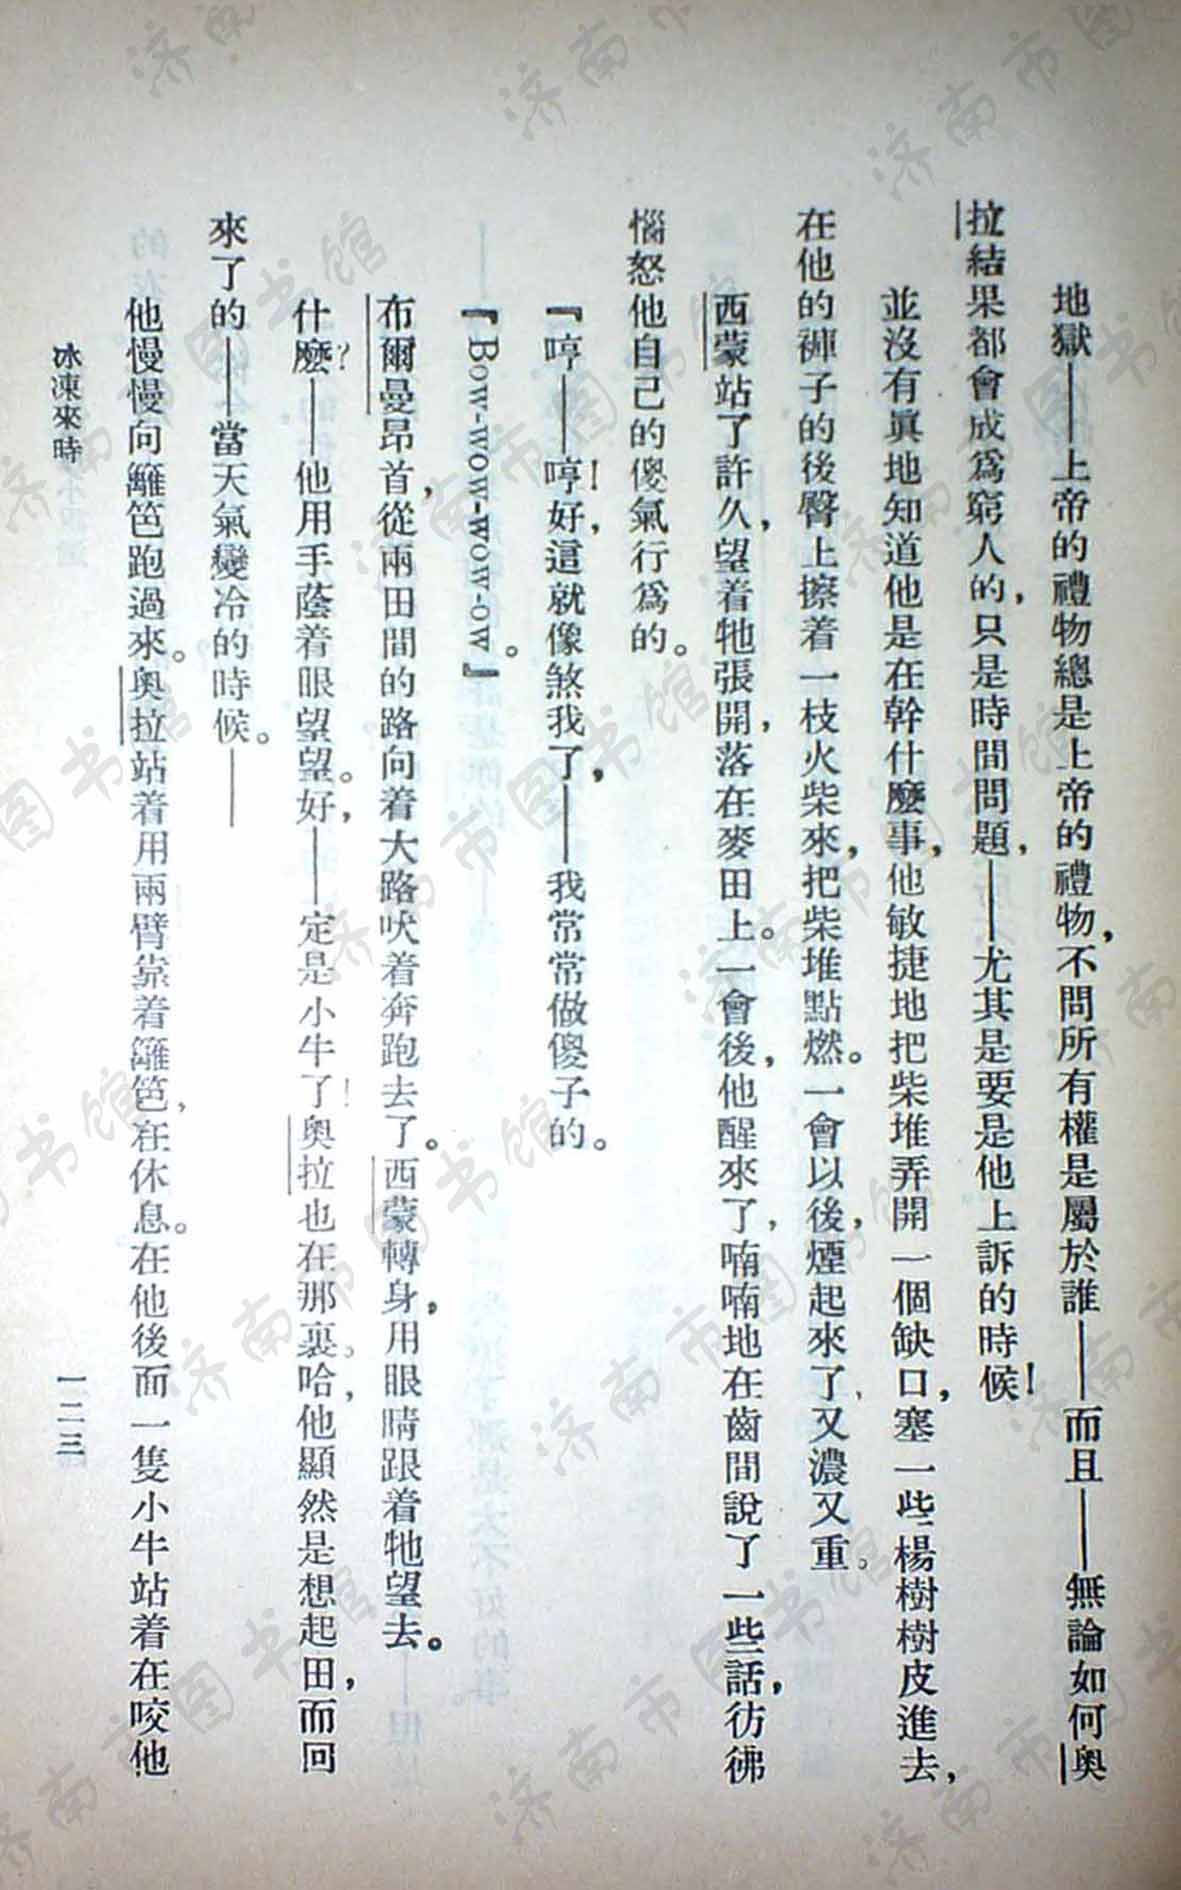 地獄——上帝的禮物總是上帝的禮物，不問所有權是屬於誰——而且——無論如何奧
拉結果都會成爲窮人的，只是時間問題，——尤其是要是他上訴的時候！
並沒有眞地知道他是在幹什麼事，他敏捷地把柴堆弄開一個缺口，塞一些楊樹樹皮進去，
在他的褲子的後臀上擦着一枝火柴來，把柴堆點燃。一會以後，煙起來了，又濃又重。
西蒙站了許久，望着牠張開，落在麥田上。一會後，他醒來了，喃喃地在齒間說了一些話，彷彿
惱怒他自己的傻氣行爲的。
『哼——哼！好，這就像煞我了，——我常常做傻子的。
『Bow-wow-wow-ow』。
布爾曼昂首，從兩田間的路向着大路吠着奔跑去了。西蒙轉身，用眼睛跟着牠望去。
什麼？——他用手蔭着眼望望。好，——定是小牛了！奧拉也在那裏。哈，他顯然是想起田，而回
來了的——當天氣變冷的時候。——
他慢慢向籬笆跑過來。奧拉站着用兩臂靠着籬笆，在休息。在他後面一隻小牛站着在咬他
冰凍來時
一二三
济南市图书馆